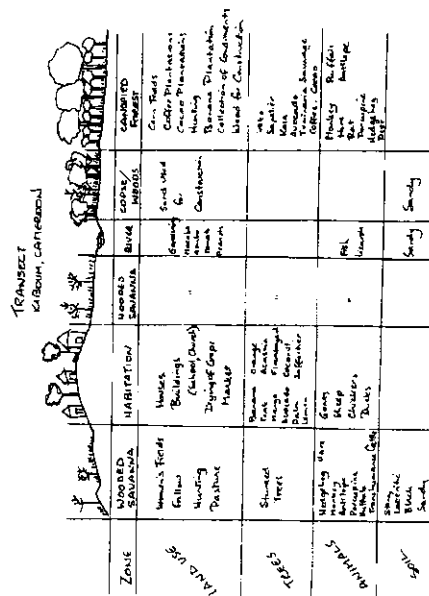 TRANSECT
KIBOUM, CAMEROON
ZONE
WOODED
SAVANNA
HABITATION
WOODED
SAVANNA
RIVER
COPSE/
WOODS
CANOPIED
FOREST
LAND USE
Women's Fields
Fallow
Hunting
Pasture
Houses
Buildings
(School, Church)
Drying of Crops
Market
"
Gardening
Sand used
for
Construction
Corn Fields
Coffee Plantations
Cacao Plantations
Hunting
Banana Plantation
Collection of Condiments
Wood for Construction
TREES
Stunted
Trees
Banana Orange
Fruit Acacia
Mango
Avocado Coconut
Palm
Lemon
"
Iroko
Sapelli
Avocado
Coffee, Cacao
ANIMALS
Hedgehog Hare
Monkey
Antelope
Porcupine
Buffalo
Transhumance Cattle
Goats
Sheep
Chickens
Ducks
"
Fish
Lizards
Monkey Buffalo
Hare Antelope
Rat
Porcupine
Hedgehog
SOIL
Stony
Lateritic
Black
Sandy
Sandy
Sandy